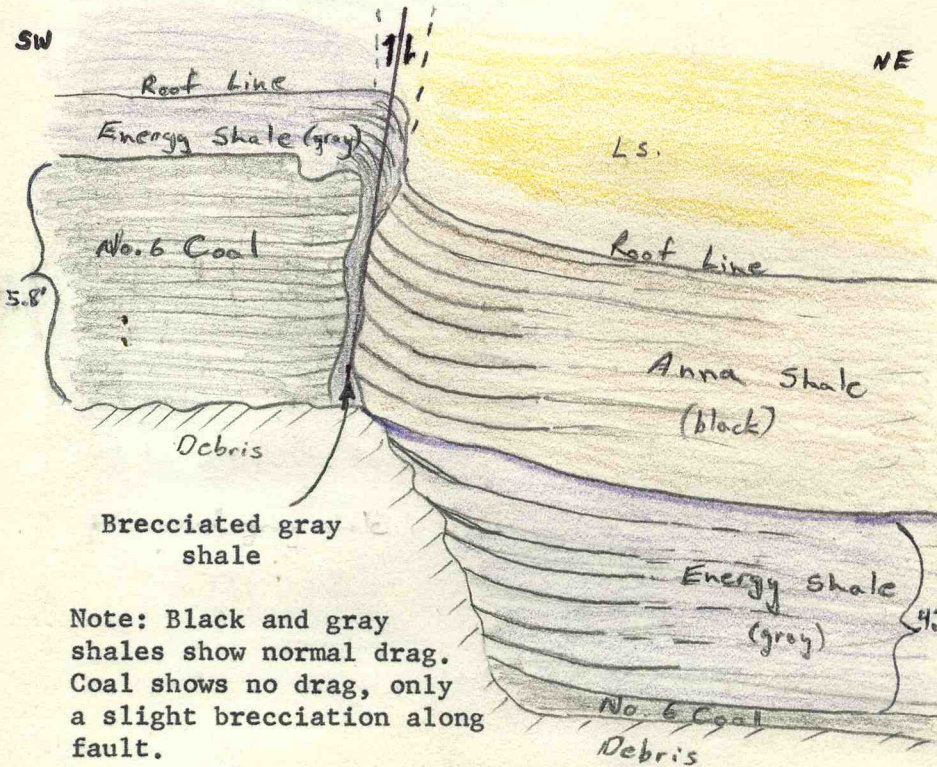 SW
NE
Roof Line
Energy Shale (gray)
Ls.
No. 6 Coal
5.8'
Roof Line
Anna Shale
(black)
Debris
Brecciated gray
shale
Energy Shale
(gray)
Note: Black and gray
shales show normal drag.
Coal shows no drag, only
a slight brecciation along
fault.
No. 6 Coal
Debris